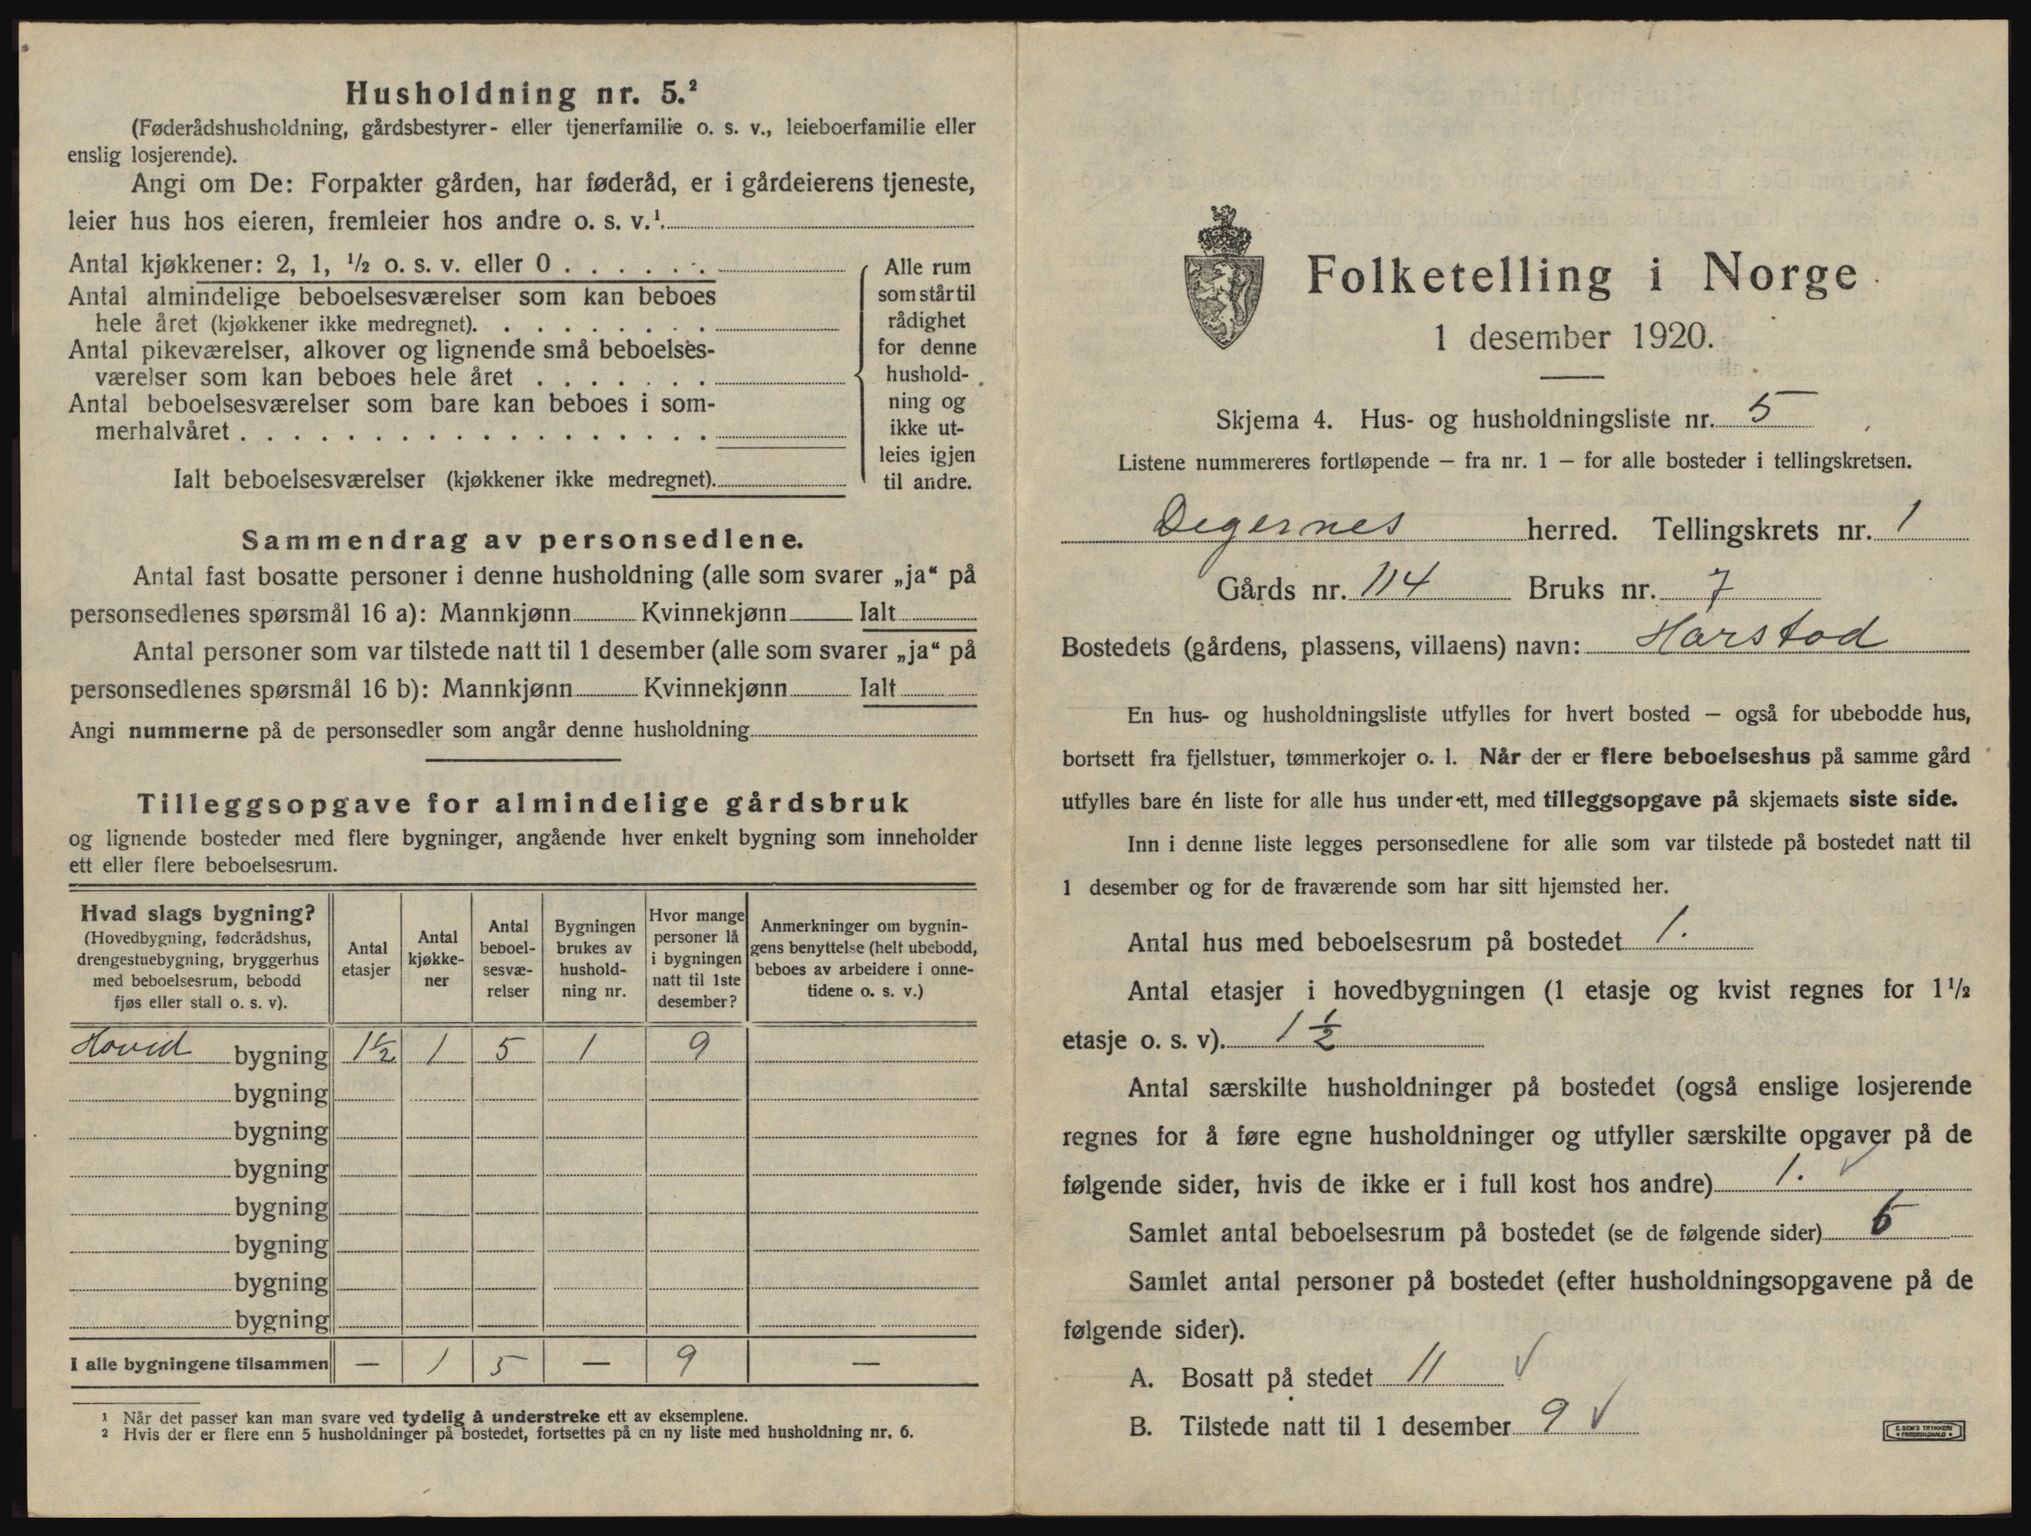 Husholdning nr. 5.²
(Føderådshusholdning, gårdsbestyrer- eller tjenerfamilie o. s. v., leieboerfamilie eller
enslig losjerende).
Angi om De: Forpakter gården, har føderåd, er i gårdeierens tjeneste,
leier hus hos eieren, fremleier hos andre o. s. v.¹.
Antal kjøkkener: 2, 1, ½ o. s. v. eller 0 . . . . . .
Antal almindelige beboelsesværelser som kan beboes
hele året (kjøkkener ikke medregnet). . . . . . . . .
Antal pikeværelser, alkover og lignende små beboelses-
værelser som kan beboes hele året . . . . . . .
Antal beboelsesværelser som bare kan beboes i som-
merhalvåret . . . . . . . . . . . . . . . . . .
Ialt beboelsesværelser (kjøkkener ikke medregnet).
Alle rum
som står til
rådighet
for denne
hushold-
ning og
ikke ut-
leies igjen
til andre.
Sammendrag av personsedlene.
Antal fast bosatte personer i denne husholdning (alle som svarer „ja“ på
personsedlenes spørsmål 16 a): Mannkjønn Kvinnekjønn Ialt
Antal personer som var tilstede natt til 1 desember (alle som svarer „ja“ på
personsedlenes spørsmål 16 b): Mannkjønn Kvinnekjønn Ialt
Angi nummerne på de personsedler som angår denne husholdning
Tilleggsopgave for almindelige gårdsbruk
og lignende bosteder med flere bygninger, angående hver enkelt bygning som inneholder
ett eller flere beboelsesrum.
Hvad slags bygning?
(Hovedbygning, føderådshus,
drengestuebygning, bryggerhus
med beboelsesrum, bebodd
fjøs eller stall o. s. v).
Antal
etasjer
Antal
kjøkke-
ner
Antal
beboel-
sesvæ-
relser
Bygningen
brukes av
hushold-
ning nr.
Hvor mange
personer lå
i bygningen
natt til 1ste
desember?
Anmerkninger om bygnin-
gens benyttelse (helt ubebodd,
beboes av arbeidere i onne-
tidene o. s. v.)
Hovid bygning 1½ 1 5 1 9
bygning
bygning
bygning
bygning
bygning
bygning
bygning
I alle bygningene tilsammen — 1 5 — 9 —
¹ Når det passer kan man svare ved tydelig å understreke ett av eksemplene.
² Hvis der er flere enn 5 husholdninger på bostedet, fortsettes på en ny liste med husholdning nr. 6.
Folketelling i Norge
1 desember 1920.
Skjema 4. Hus- og husholdningsliste nr. 5
Listene nummereres fortløpende — fra nr. 1 — for alle bosteder i tellingskretsen.
Degernes herred. Tellingskrets nr. 1
Gårds nr. 114 Bruks nr. 7
Bostedets (gårdens, plassens, villaens) navn: Harstad
En hus- og husholdningsliste utfylles for hvert bosted — også for ubebodde hus,
bortsett fra fjellstuer, tømmerkojer o. l. Når der er flere beboelseshus på samme gård
utfylles bare én liste for alle hus under ett, med tilleggsopgave på skjemaets siste side.
Inn i denne liste legges personsedlene for alle som var tilstede på bostedet natt til
1 desember og for de fraværende som har sitt hjemsted her.
Antal hus med beboelsesrum på bostedet 1.
Antal etasjer i hovedbygningen (1 etasje og kvist regnes for 1½
etasje o. s. v). 1½
Antal særskilte husholdninger på bostedet (også enslige losjerende
regnes for å føre egne husholdninger og utfyller særskilte opgaver på de
følgende sider, hvis de ikke er i full kost hos andre) 1. ✓
Samlet antal beboelsesrum på bostedet (se de følgende sider)
Samlet antal personer på bostedet (efter husholdningsopgavene på de
følgende sider).
A. Bosatt på stedet 11 ✓
B. Tilstede natt til 1 desember 9 ✓